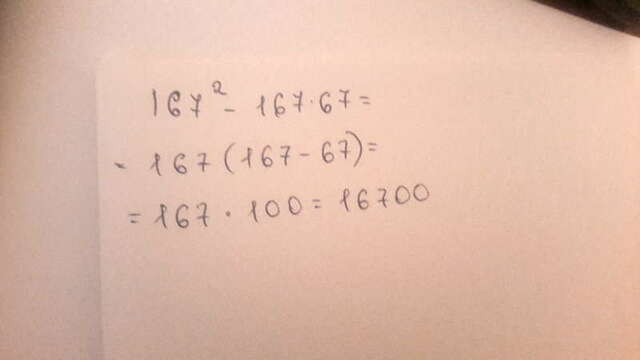 167² - 167·67=
= 167(167-67)=
= 167·100=16700